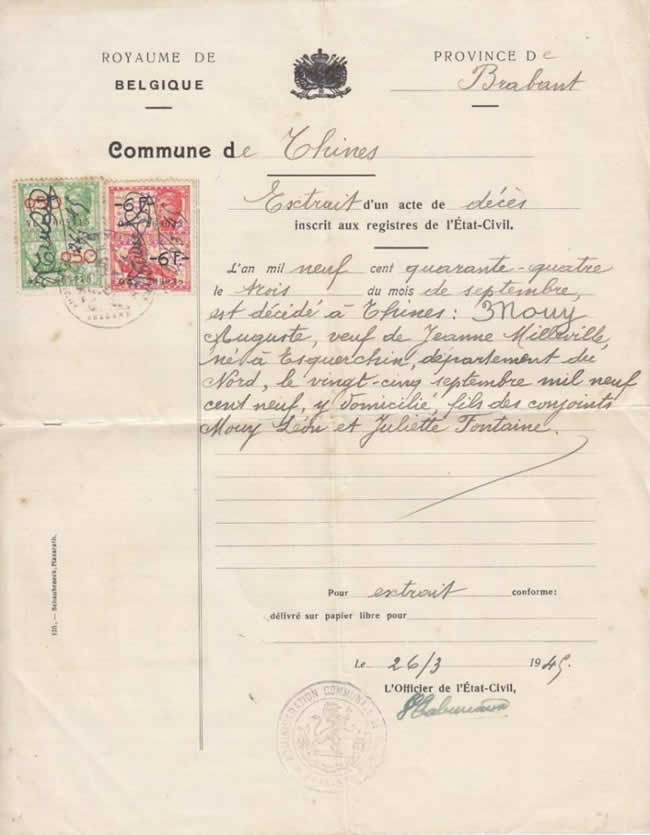 ROYAUME DE
BELGIQUE
PROVINCE De
Brabant
Commune de Thines
8.50
-6F-
8.50
-6F-
Extrait d'un acte de décès
inscrit aux registres de l'État-Civil.
L'an mil neuf cent quarante-quatre
le trois du mois de septembre,
est décidé à Thines: Mouy
Auguste, veuf de Jeanne Milleville,
né à Esquerchin, département du
Nord, le vingt-cinq septembre mil neuf
cent neuf, y domicilié, fils des conjoints
Mouy Léon et Juliette Fontaine.
Pour extrait conforme:
délivré sur papier libre pour
Le 26/3 1945.
L'Officier de l'État-Civil,
ADMINISTRATION COMMUNALE